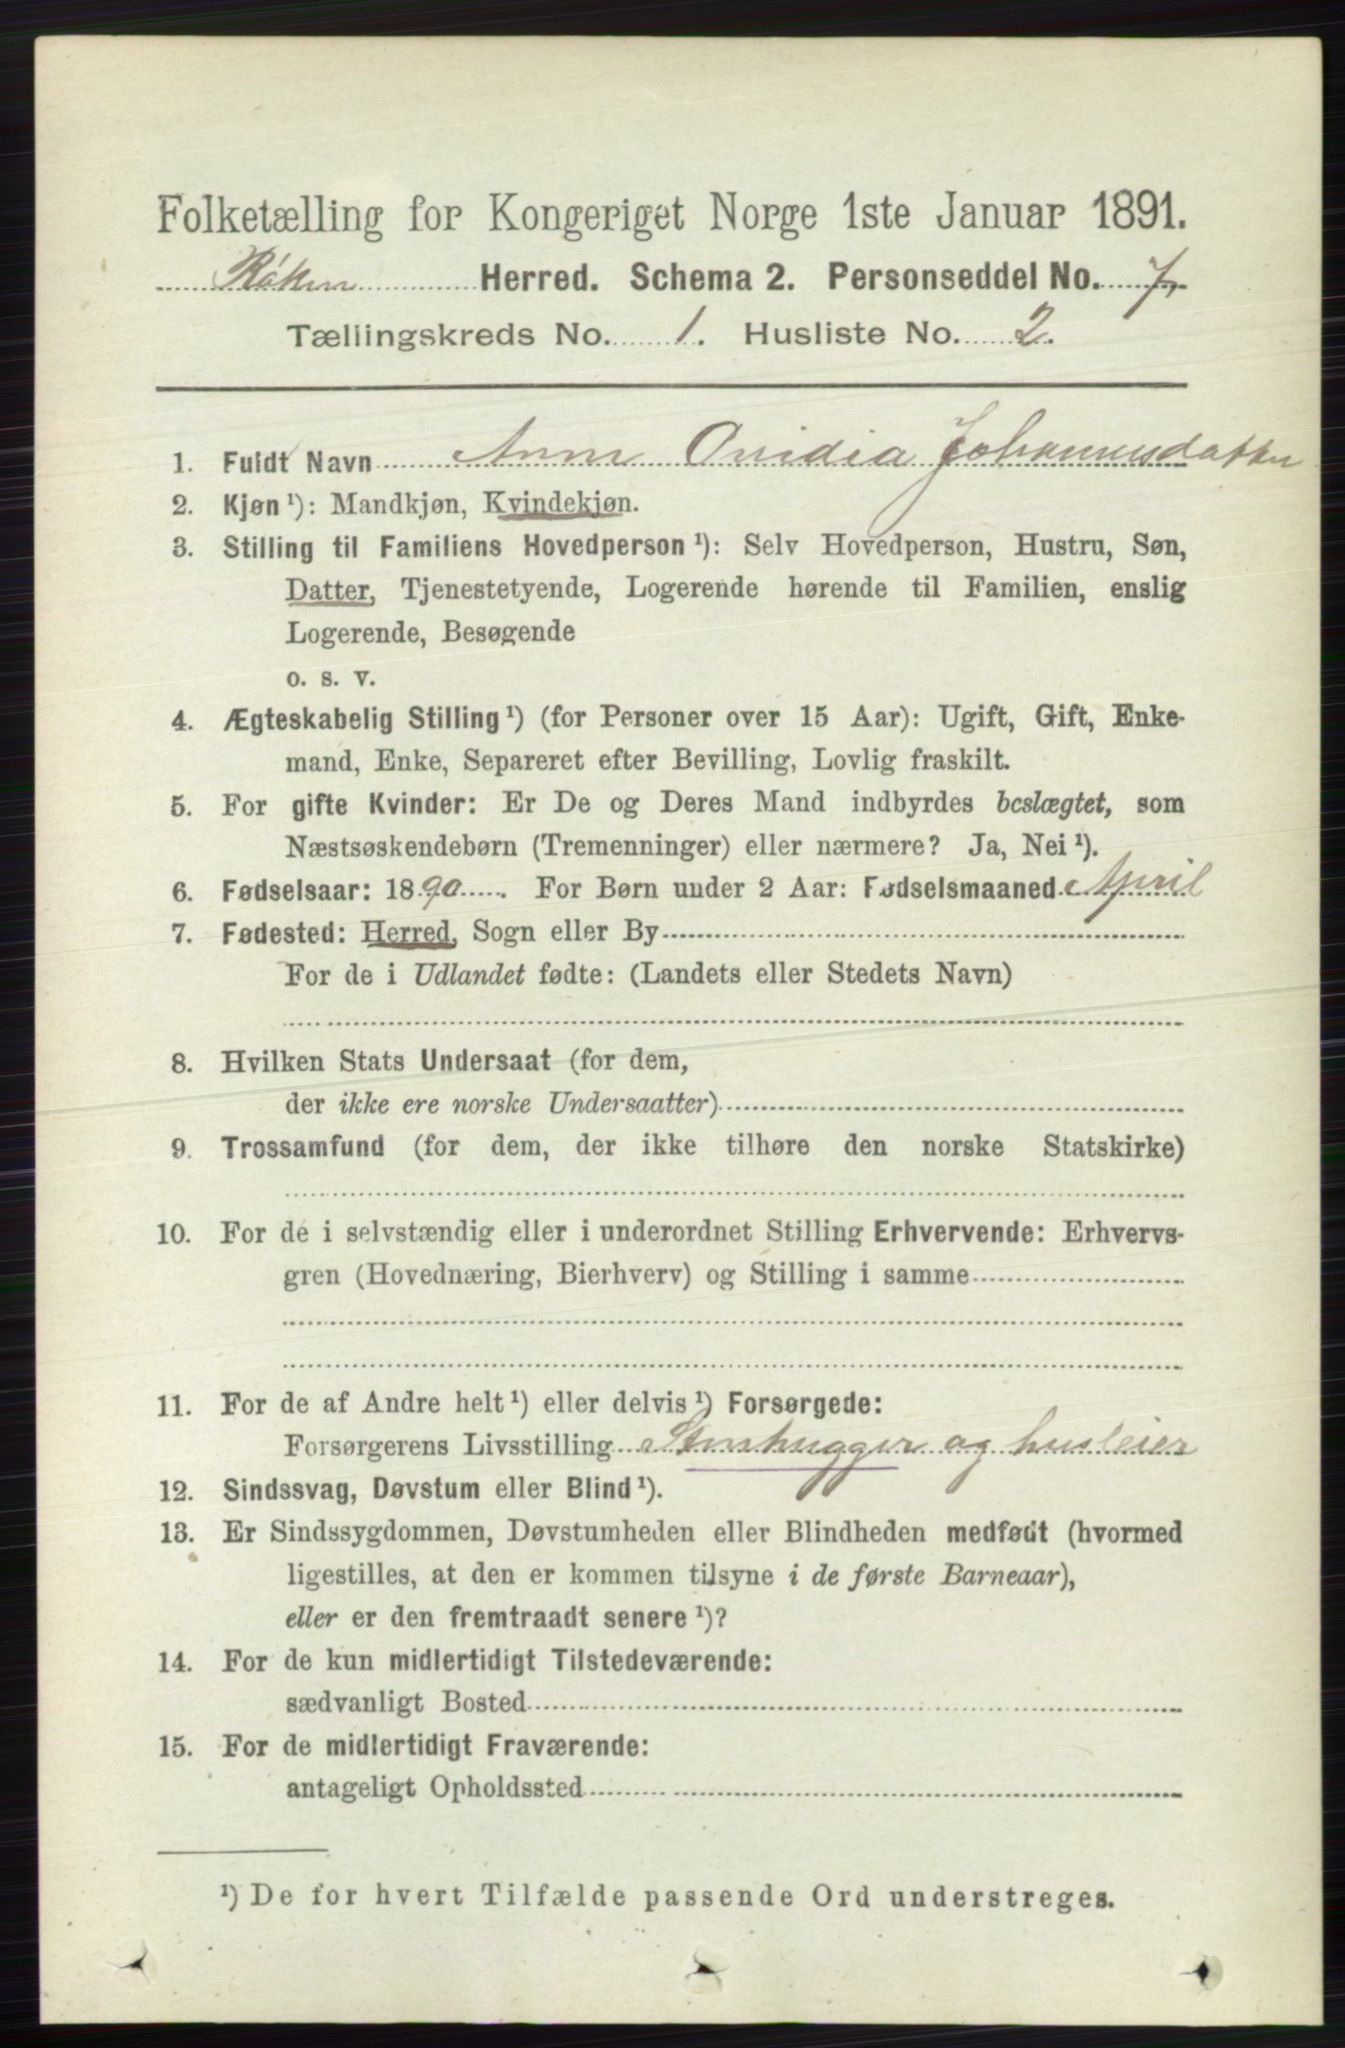 Folketælling for Kongeriget Norge 1ste Januar 1891.
Røken Herred. Schema 2. Personseddel No. 7
Tællingskreds No. 1. Husliste No. 2.
1. Fuldt Navn Anne Ovidia Johannesdatter
2. Kjøn ¹): Mandkjøn, Kvindekjøn.
3. Stilling til Familiens Hovedperson ¹): Selv Hovedperson, Hustru, Søn,
Datter, Tjenestetyende, Logerende hørende til Familien, enslig
Logerende, Besøgende
o. s. v.
4. Ægteskabelig Stilling ¹) (for Personer over 15 Aar): Ugift, Gift, Enke-
mand, Enke, Separeret efter Bevilling, Lovlig fraskilt.
5. For gifte Kvinder: Er De og Deres Mand indbyrdes beslægtet, som
Næstsøskendebørn (Tremenninger) eller nærmere? Ja, Nei ¹).
6. Fødselsaar: 1890. For Børn under 2 Aar: Fødselsmaaned April
7. Fødested: Herred, Sogn eller By
For de i Udlandet fødte: (Landets eller Stedets Navn)
8. Hvilken Stats Undersaat (for dem,
der ikke ere norske Undersaatter)
9. Trossamfund (for dem, der ikke tilhøre den norske Statskirke)
10. For de i selvstændig eller i underordnet Stilling Erhvervende: Erhvervs-
gren (Hovednæring, Bierhverv) og Stilling i samme
11. For de af Andre helt ¹) eller delvis ¹) Forsørgede:
Forsørgerens Livsstilling Stenhugger og husleier
12. Sindssvag, Døvstum eller Blind ¹).
13. Er Sindssygdommen, Døvstumheden eller Blindheden medfødt (hvormed
ligestilles, at den er kommen tilsyne i de første Barneaar),
eller er den fremtraadt senere ¹)?
14. For de kun midlertidigt Tilstedeværende:
sædvanligt Bosted
15. For de midlertidigt Fraværende:
antageligt Opholdssted
¹) De for hvert Tilfælde passende Ord understreges.